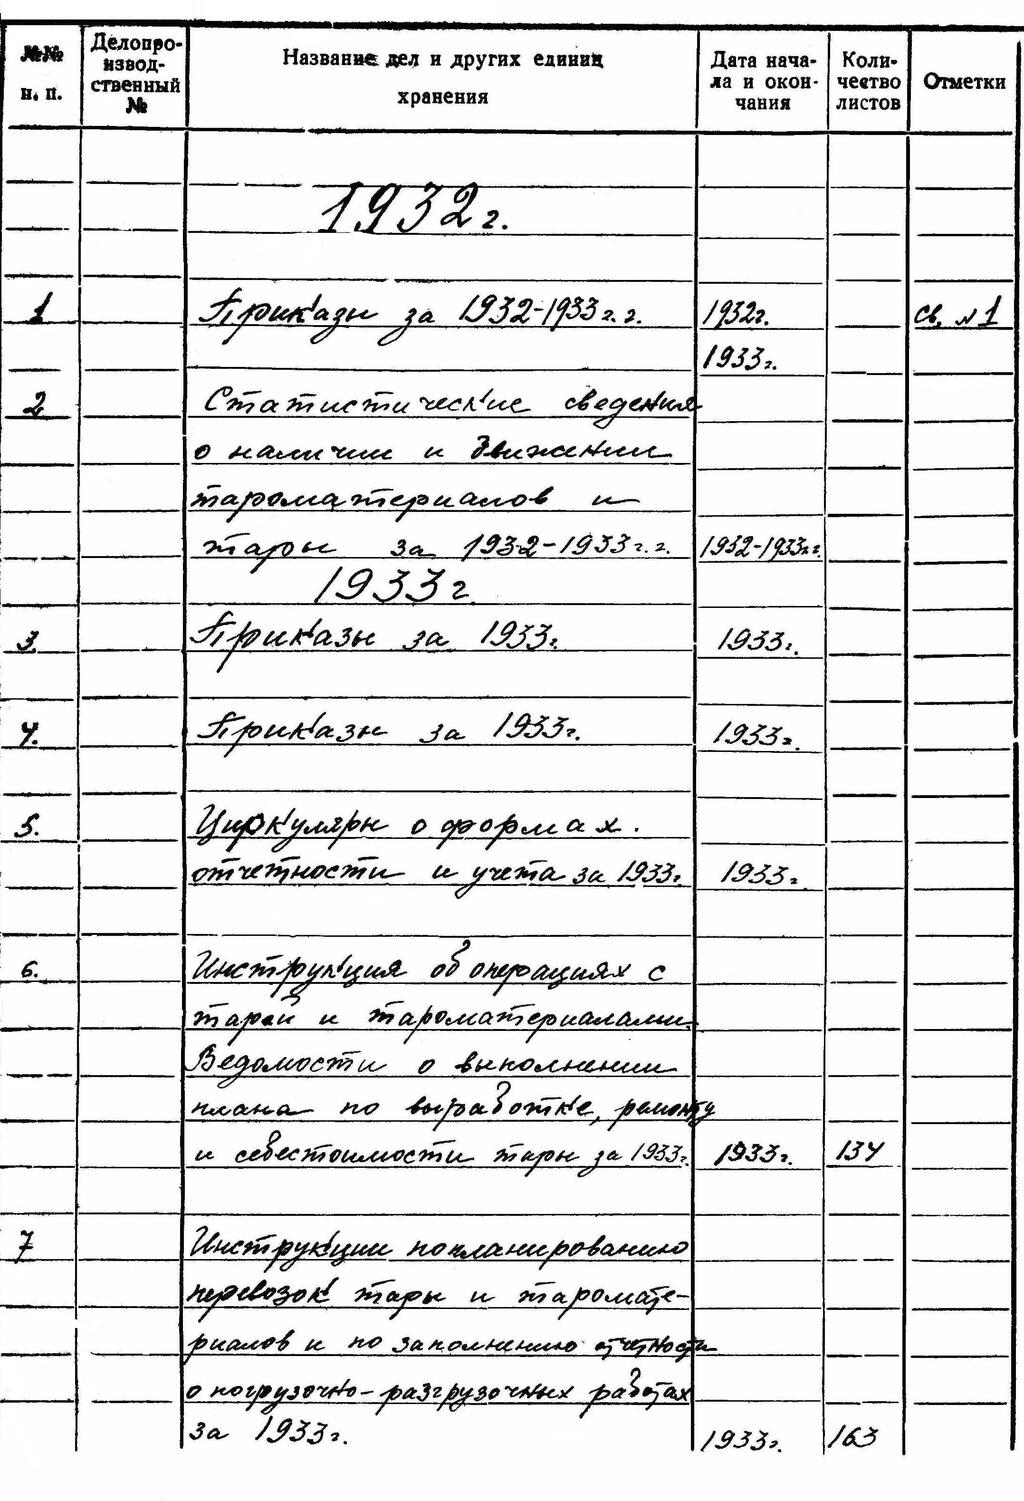 №№ н. п.
Делопро-
извод-
ственный
№
Название дел и других единиц
хранения
Дата нача-
ла и окон-
чания
Коли-
чество
листов
Отметки
1932г.
1 Приказы за 1932-1933г.г. 1932г. св. №1
1933г.
2 Статистические сведения
о наличии и движении
тароматериалов и
тары за 1932-1933г.г. 1932-1933г.г.
1933г.
3. Приказы за 1933г. 1933г.
4. Приказы за 1933г. 1933г.
5. Циркуляры о формах.
отчетности и учета за 1933г. 1933г.
6. Инструкция об операциях с
тарой и тароматериалами.
Ведомости о выполнении
плана по выработке, ремонту
и себестоимости тары за 1933г. 1933г. 134
7 Инструкции по планированию
перевозок тары и таромате-
риалов и по заполнению отчетности
о погрузочно-разгрузочных работах
за 1933г. 1933г. 163